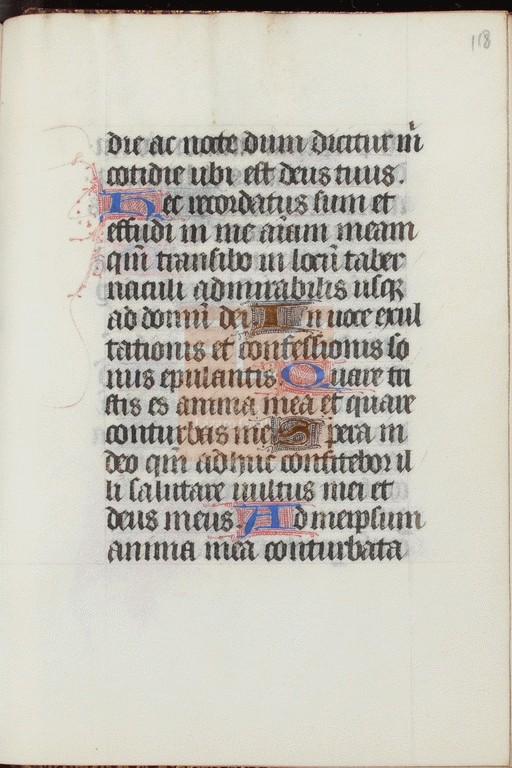 118
die ac nocte dum dicitur m̄
cotidie ubi est deus tuus.
Hec recordatus sum et
effudi in me aīam meam
qm̄ transibo in locū taber
naculi admirabilis usqꝫ
ad domū dei In uoce exul
tationis et confessionis so
nus epulantis. Quare tri
stis es anima mea et quare
conturbas me Spera in
deo qm̄ adhuc confitebor il
li salutare uultus mei et
deus meus. Ad meipsum
anima mea conturbata